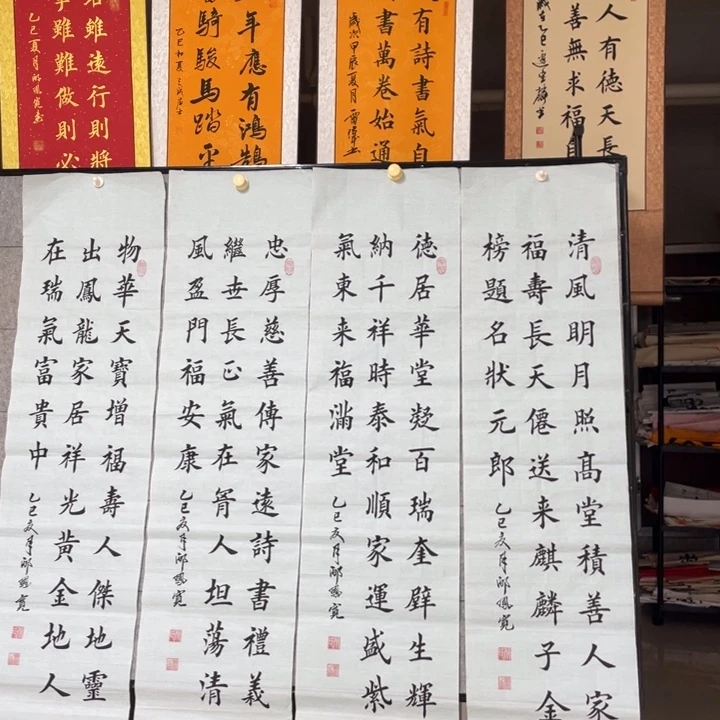 人有德天長
善無求福自
有詩書氣自
書萬卷始通
歲次甲辰夏月
年應有鴻鵠
騎駿馬踏平
雖遠行則將
雖難做則必
乙巳夏月
清風明月照髙堂積善人家
福壽長天僊送来麒麟子金
榜題名狀元郎
乙巳亥月
德居華堂凝百瑞奎壁生輝
納千祥時泰和順家運盛紫
氣東来福滿堂
乙巳亥月
忠厚慈善傳家遠詩書禮義
繼世長正氣在胷人坦蕩清
風盈門福安康
乙巳亥月
物華天寶增福壽人傑地靈
出鳳龍家居祥光黃金地人
在瑞氣富貴中
乙巳亥月